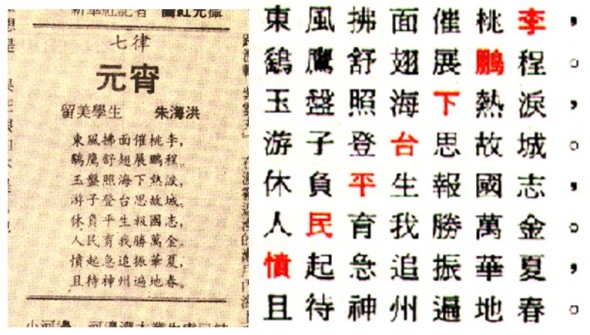 七律
元宵
留美學生 朱海洪
東風拂面催桃李，
鷂鷹舒翅展鵬程。
玉盤照海下熱淚，
游子登台思故城。
休負平生報國志，
人民育我勝萬金。
憤起急追振華夏，
且待神州遍地春。
東風拂面催桃李，
鷂鷹舒翅展鵬程。
玉盤照海下熱淚，
游子登台思故城。
休負平生報國志，
人民育我勝萬金。
憤起急追振華夏，
且待神州遍地春。